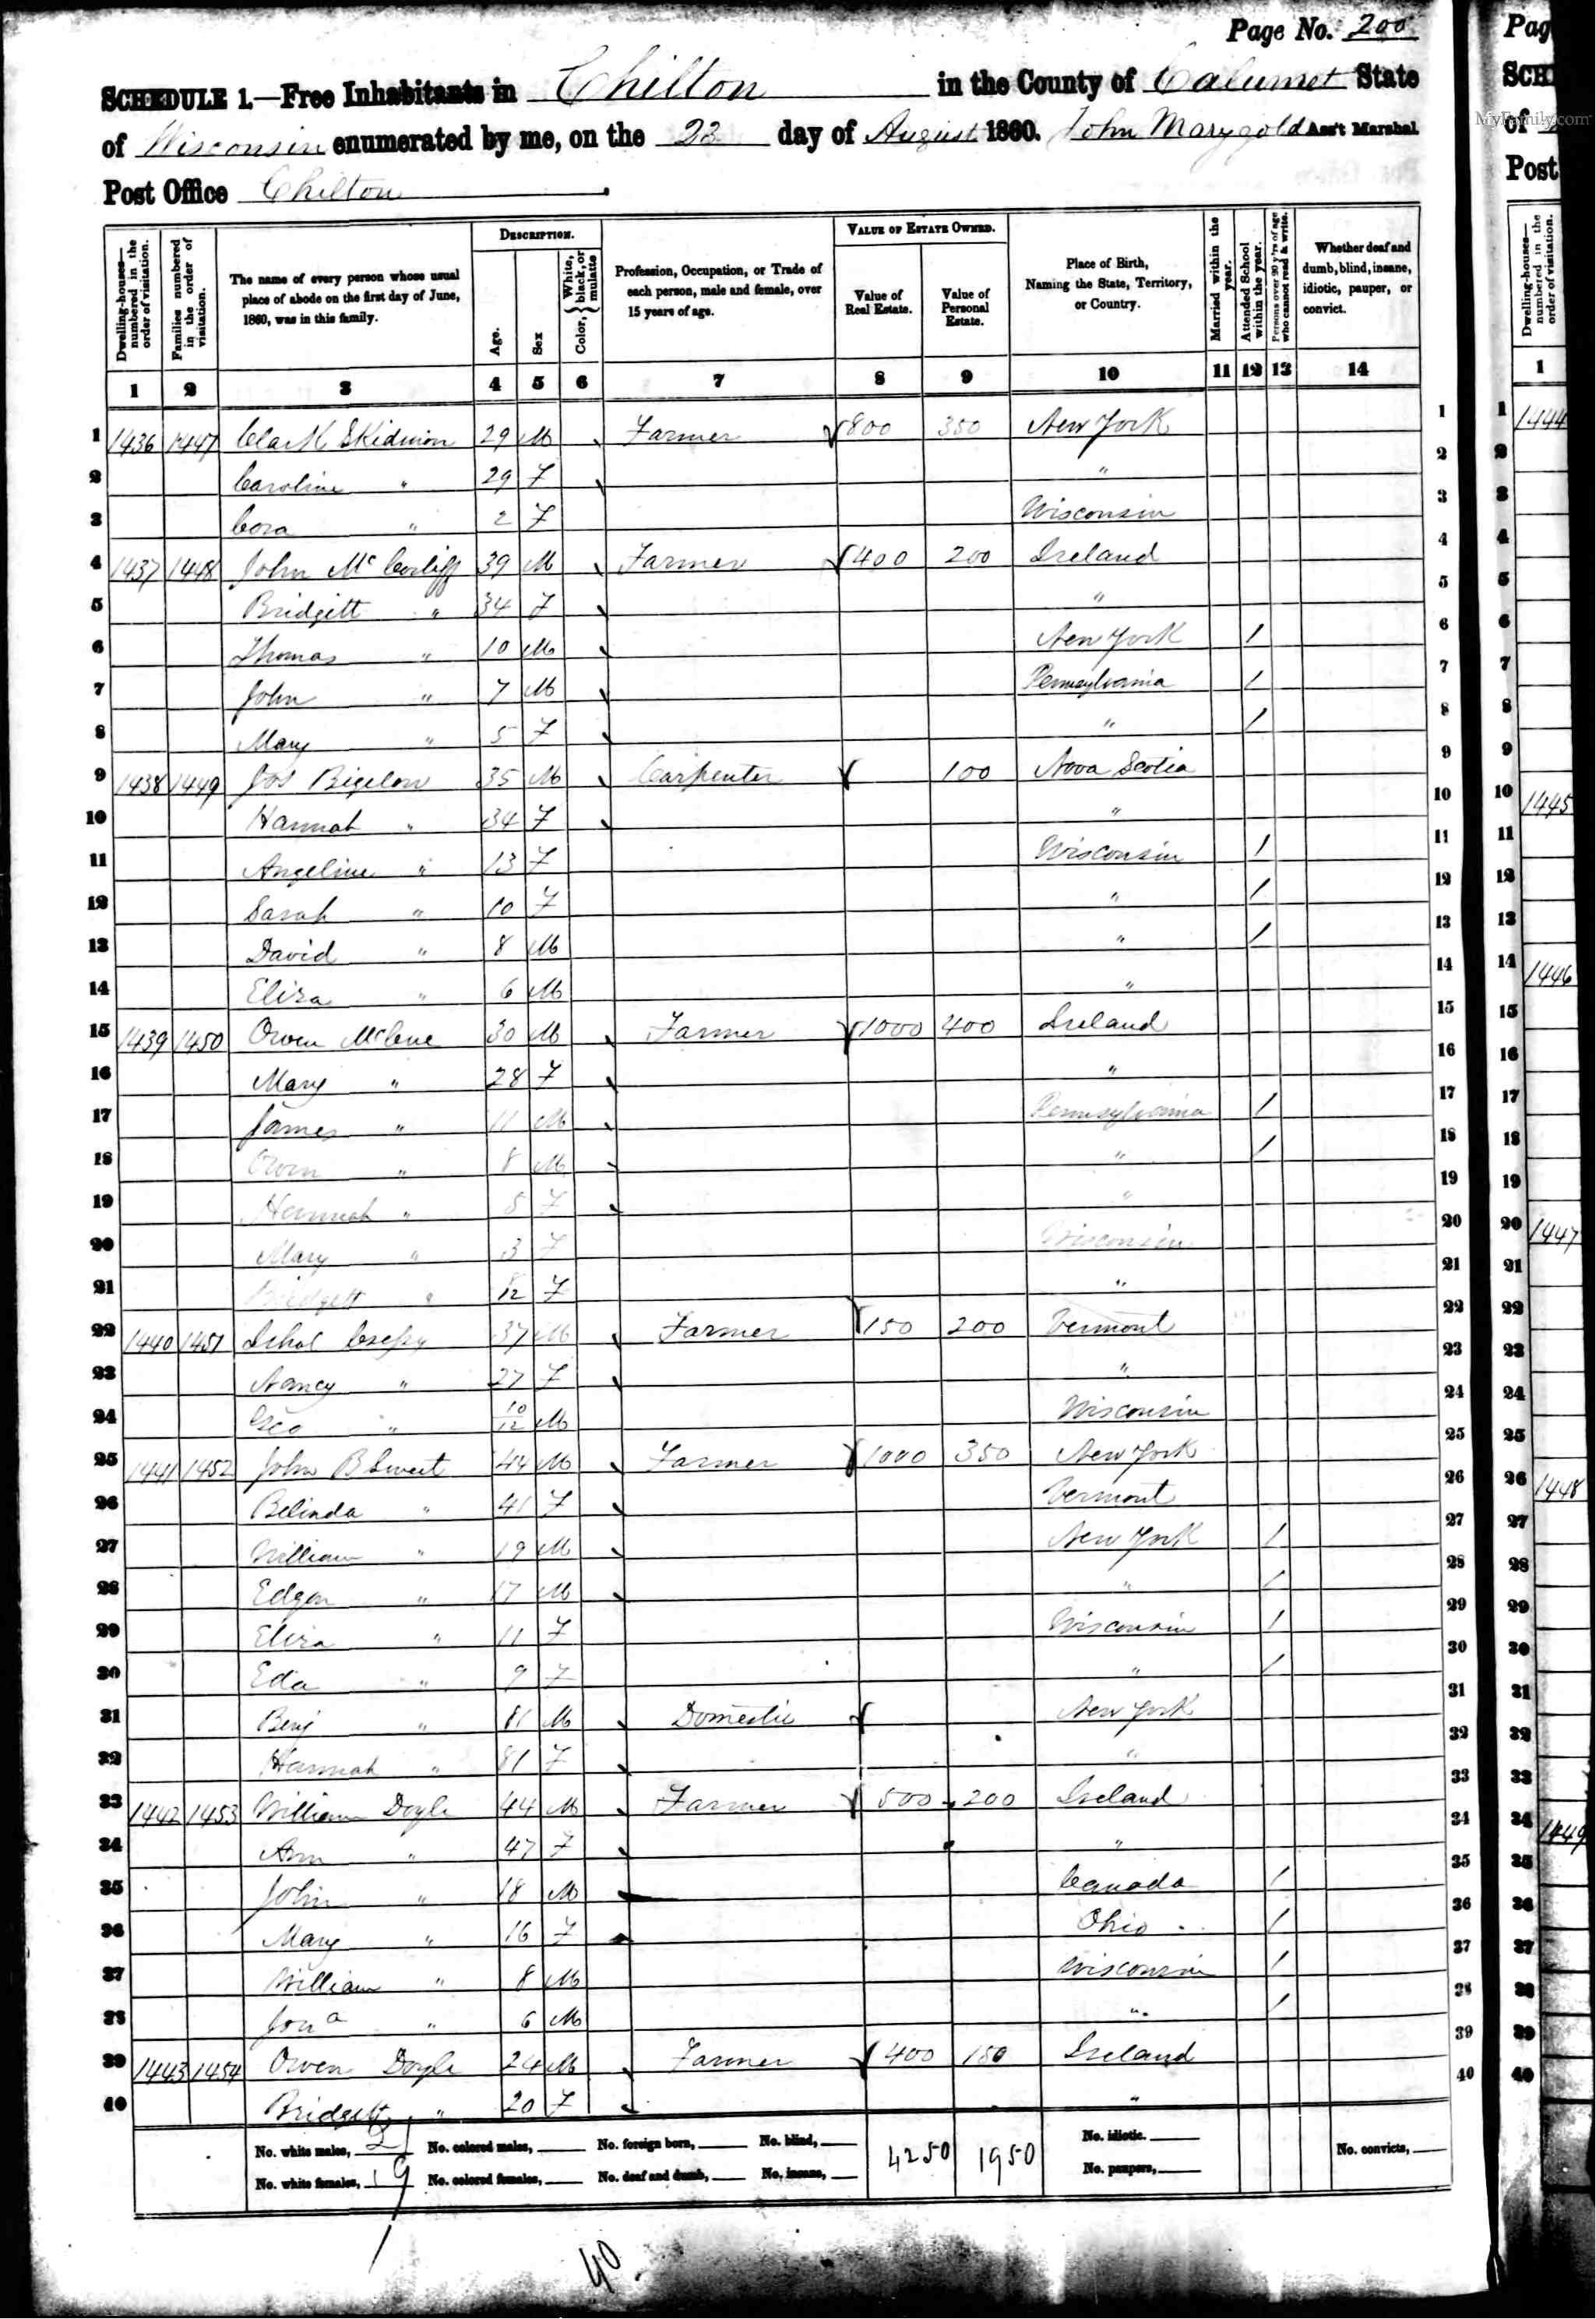 Page No. 200
SCHEDULE 1.—Free Inhabitants in Chilton in the County of Calumet State
of Wisconsin enumerated by me, on the 23 day of August 1860. John Marygold Ass't Marshal
Post Office Chilton
Dwelling-houses—numbered in the order of visitation.
Families numbered in the order of visitation.
The name of every person whose usual place of abode on the first day of June, 1860, was in this family.
DESCRIPTION.
Age.
Sex
Color, { White, black, or mulatto
Profession, Occupation, or Trade of each person, male and female, over 15 years of age.
VALUE OF ESTATE OWNED.
Value of Real Estate.
Value of Personal Estate.
Place of Birth, Naming the State, Territory, or Country.
Married within the year.
Attended School within the year.
Persons over 20 y'rs of age who cannot read & write.
Whether deaf and dumb, blind, insane, idiotic, pauper, or convict.
1 2 3 4 5 6 7 8 9 10 11 12 13 14
1 1436 1447 Clark Skidmon 29 M Farmer 800 350 New York 1
2 Caroline " 29 F " 2
3 Cora " 2 F Wisconsin 3
4 1437 1448 John McCorliff 39 M Farmer 400 200 Ireland 4
5 Bridgett " 34 F " 5
6 Thomas " 10 M New York / 6
7 John " 7 M Pennsylvania / 7
8 Mary " 5 F " / 8
9 1438 1449 Jos Bigelow 35 M Carpenter 100 Nova Scotia 9
10 Hannah " 34 F " 10
11 Angeline " 13 F Wisconsin / 11
12 Sarah " 10 F " / 12
13 David " 8 M " / 13
14 Eliza " 6 M " 14
15 1439 1450 Owen McCue 30 M Farmer 1000 400 Ireland 15
16 Mary " 28 F " 16
17 James " 11 M Pennsylvania / 17
18 Owen " 8 M " / 18
19 Hannah " 5 F " 19
20 Mary " 3 F Wisconsin 20
21 Bridgett " F " 21
22 1440 1451 37 M Farmer 150 200 Vermont 22
23 Nancy " 27 F " 23
24 Geo " 10/12 M Wisconsin 24
25 1441 1452 John B Sweet 44 M Farmer 1000 350 New York 25
26 Belinda " 41 F Vermont 26
27 William " 19 M New York / 27
28 Edgar " 17 M " / 28
29 Eliza " 11 F Wisconsin / 29
30 Eda " 9 F " / 30
31 Benj " 81 M Domestic New York 31
32 Hannah " 81 F " 32
33 1442 1453 William Doyle 44 M Farmer 500 200 Ireland 33
34 Ann " 47 F " 34
35 John " 18 M Canada / 35
36 Mary " 16 F Ohio / 36
37 William " 8 M Wisconsin / 37
38 Jona " 6 M " / 38
39 1443 1454 Owen Doyle 24 M Farmer 400 150 Ireland 39
40 Bridgett " 20 F " 40
No. white males, 21 No. colored males, No. foreign born, No. blind, 4250 1950 No. idiotic. No. convicts,
No. white females, 19 No. colored females, No. deaf and dumb, No. insane, No. paupers,
40
Pag
SCH
of
MyFamily.com
Post
Dwelling-houses—numbered in the order of visitation.
1
1 1444
2
3
4
5
6
7
8
9
10 1445
11
12
13
14 1446
15
16
17
18
19
20 1447
21
22
23
24
25
26 1448
27
28
29
30
31
32
33
34 1449
35
36
37
38
39
40